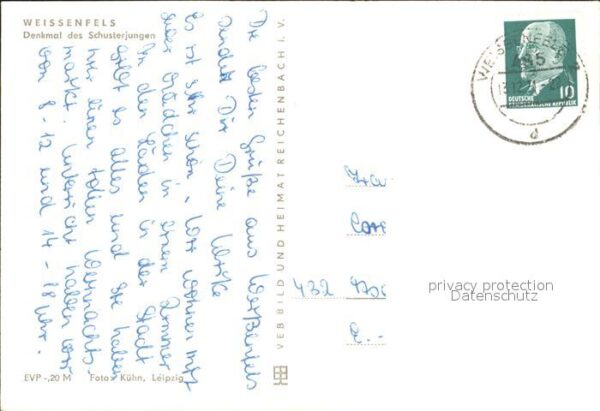 WEISSENFELS
Denkmal des Schusterjungen
Die besten Grüße aus Weißenfels
sendet Dir Deine Ulrike
Es ist sehr schön. Wir wohnen mit
vier Mädchen in einem Zimmer
In den Läden in der Stadt
gibt es alles und sie haben
hier einen tollen Weihnachts-
markt. Unterricht haben wir
von 8-12 und 14-18 Uhr.
EVP -,20 M Foto: Kühn, Leipzig
VEB BILD UND HEIMAT REICHENBACH I. V.
WEISSENFELS
485
d
DEUTSCHE
DEMOKRATISCHE REPUBLIK
10
432
privacy protection
Datenschutz